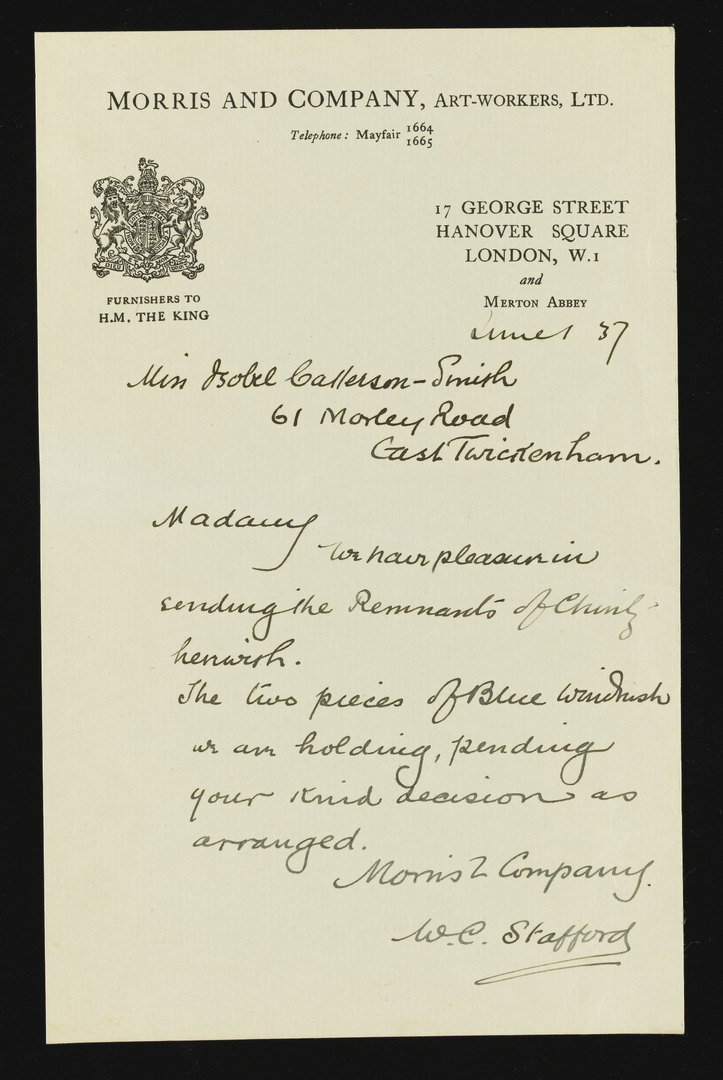 MORRIS AND COMPANY, ART-WORKERS, LTD.
Telephone: Mayfair 1664
1665
17 GEORGE STREET
HANOVER SQUARE
LONDON, W.1
and
MERTON ABBEY
FURNISHERS TO
H.M. THE KING
June 1 37
Miss Isobel Catterson-Smith
61 Morley Road
East Twickenham.
Madam
We have pleasure in
sending the Remnants of Chintz
herewith.
The two pieces of Blue Windrush
we are holding, pending
your kind decision as
arranged.
Morris & Company.
W.C. Stafford